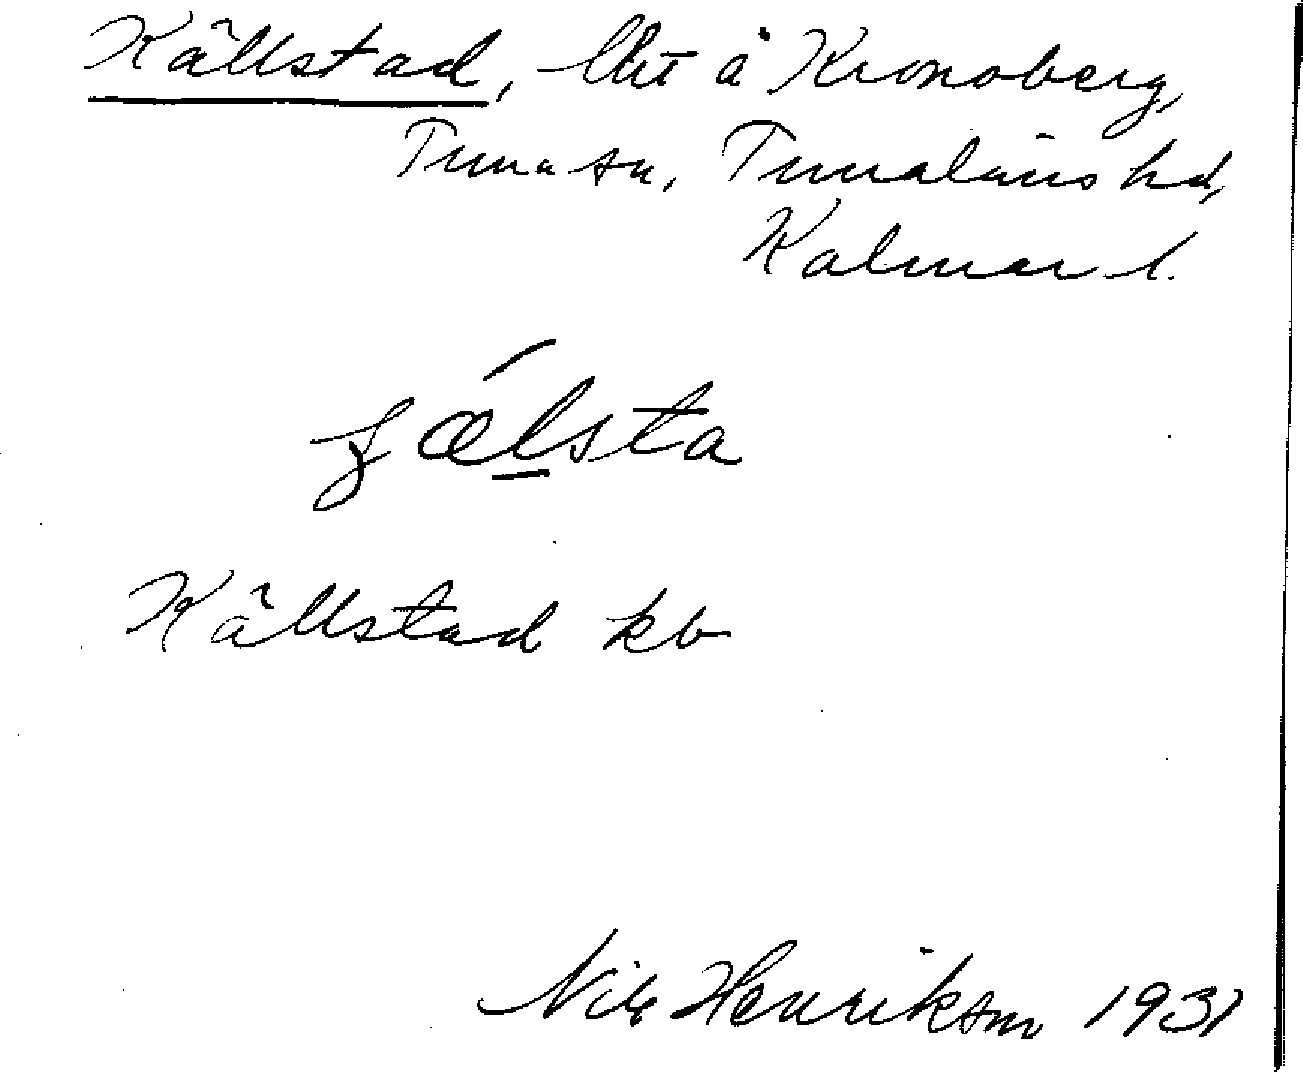 Källstad, lht å Kronoberg,
Tuna sn, Tunaläns hd,
Kalmar l.
ʃǽlsta
Källstad kb
Nils Henrikson 1931